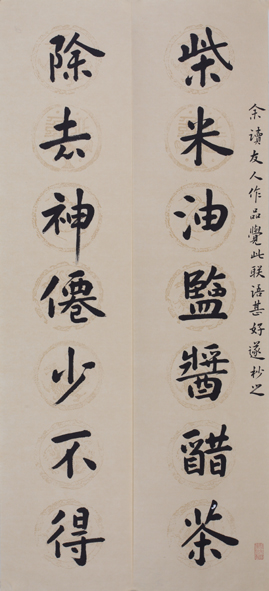 余读友人作品觉此联语甚好遂抄之
柴米油鹽醬醋茶
除去神僊少不得